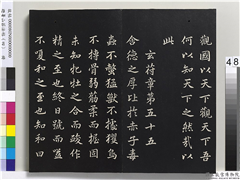 觀國以天下觀天下吾
何以知天下之然哉以
此
玄符章第五十五
含德之厚比於赤子毒
蟲不螫猛獸不據玃鳥
不搏骨弱筋柔而握固
未知牝牡之合而峻作
精之至也終日號而嗌
不嗄和之至也知和曰
48